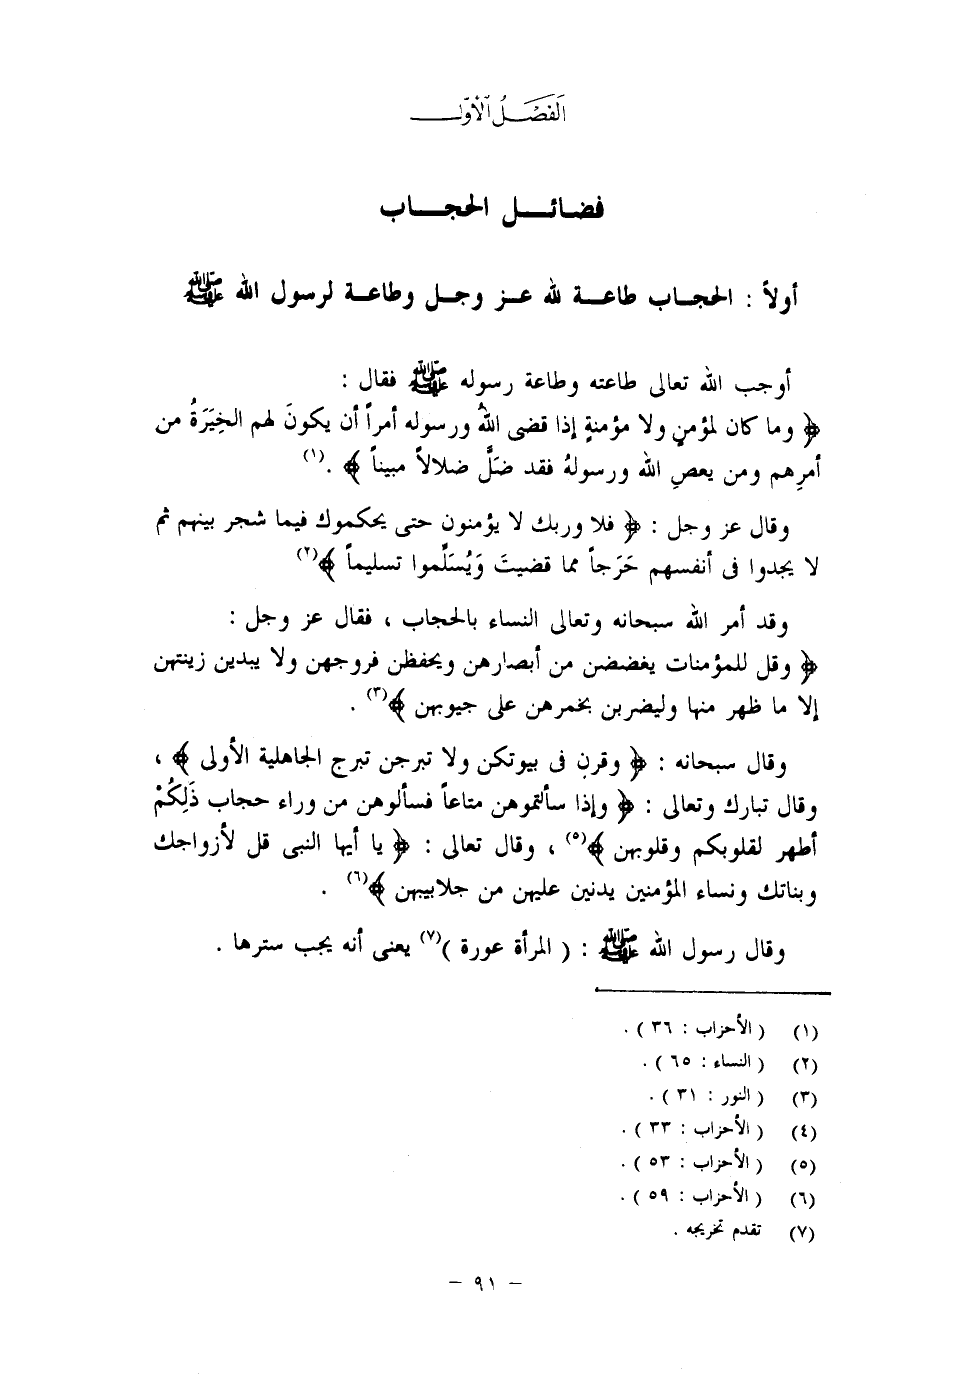 الفَصْلُ الأوّل
فضائل الحجاب
أولاً : الحجاب طاعة لله عز وجل وطاعة لرسول الله ﷺ
أوجب الله تعالى طاعته وطاعة رسوله ﷺ فقال :
﴿ وما كان لمؤمنٍ ولا مؤمنةٍ إذا قضى اللهُ ورسوله أمراً أن يكونَ لهم الخِيَرَةُ من
أمرِهم ومن يعصِ الله ورسولهُ فقد ضَلَّ ضلالاً مبيناً ﴾ .(١)
وقال عز وجل : ﴿ فلا وربك لا يؤمنون حتى يحكموك فيما شجر بينهم ثم
لا يجدوا فى أنفسهم حَرَجاً مما قضيتَ وَيُسَلِّموا تسليماً ﴾(٢)
وقد أمر الله سبحانه وتعالى النساء بالحجاب ، فقال عز وجل :
﴿ وقل للمؤمنات يغضضن من أبصارهن ويحفظن فروجهن ولا يبدين زينتهن
إلا ما ظهر منها وليضربن بخمرهن على جيوبهن ﴾(٣) .
وقال سبحانه : ﴿ وقرن فى بيوتكن ولا تبرجن تبرج الجاهلية الأولى ﴾ ،
وقال تبارك وتعالى : ﴿ وإذا سألتموهن متاعاً فسألوهن من وراء حجاب ذَلِكُمْ
أطهر لقلوبكم وقلوبهن ﴾(٥) ، وقال تعالى : ﴿ يا أيها النبى قل لأزواجك
وبناتك ونساء المؤمنين يدنين عليهن من جلابيبهن ﴾(٦) .
وقال رسول الله ﷺ : ( المرأة عورة )(٧) يعنى أنه يجب سترها .
(١) ( الأحزاب : ٣٦ ) .
(٢) ( النساء : ٦٥ ) .
(٣) ( النور : ٣١ ) .
(٤) ( الأحزاب : ٣٣ ) .
(٥) ( الأحزاب : ٥٣ ) .
(٦) ( الأحزاب : ٥٩ ) .
(٧) تقدم تخريجه .
– ٩١ –